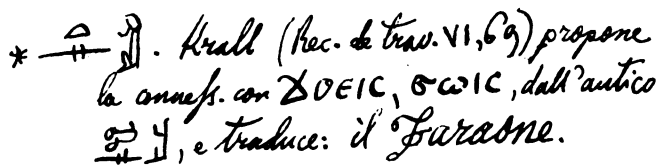 * . Krall (Rec. de trav. VI, 69) propone
la conneſs. con ϪⲞⲈⲒⲤ, ϭⲱⲓⲥ, dall'antico
, e traduce: il Faraone.